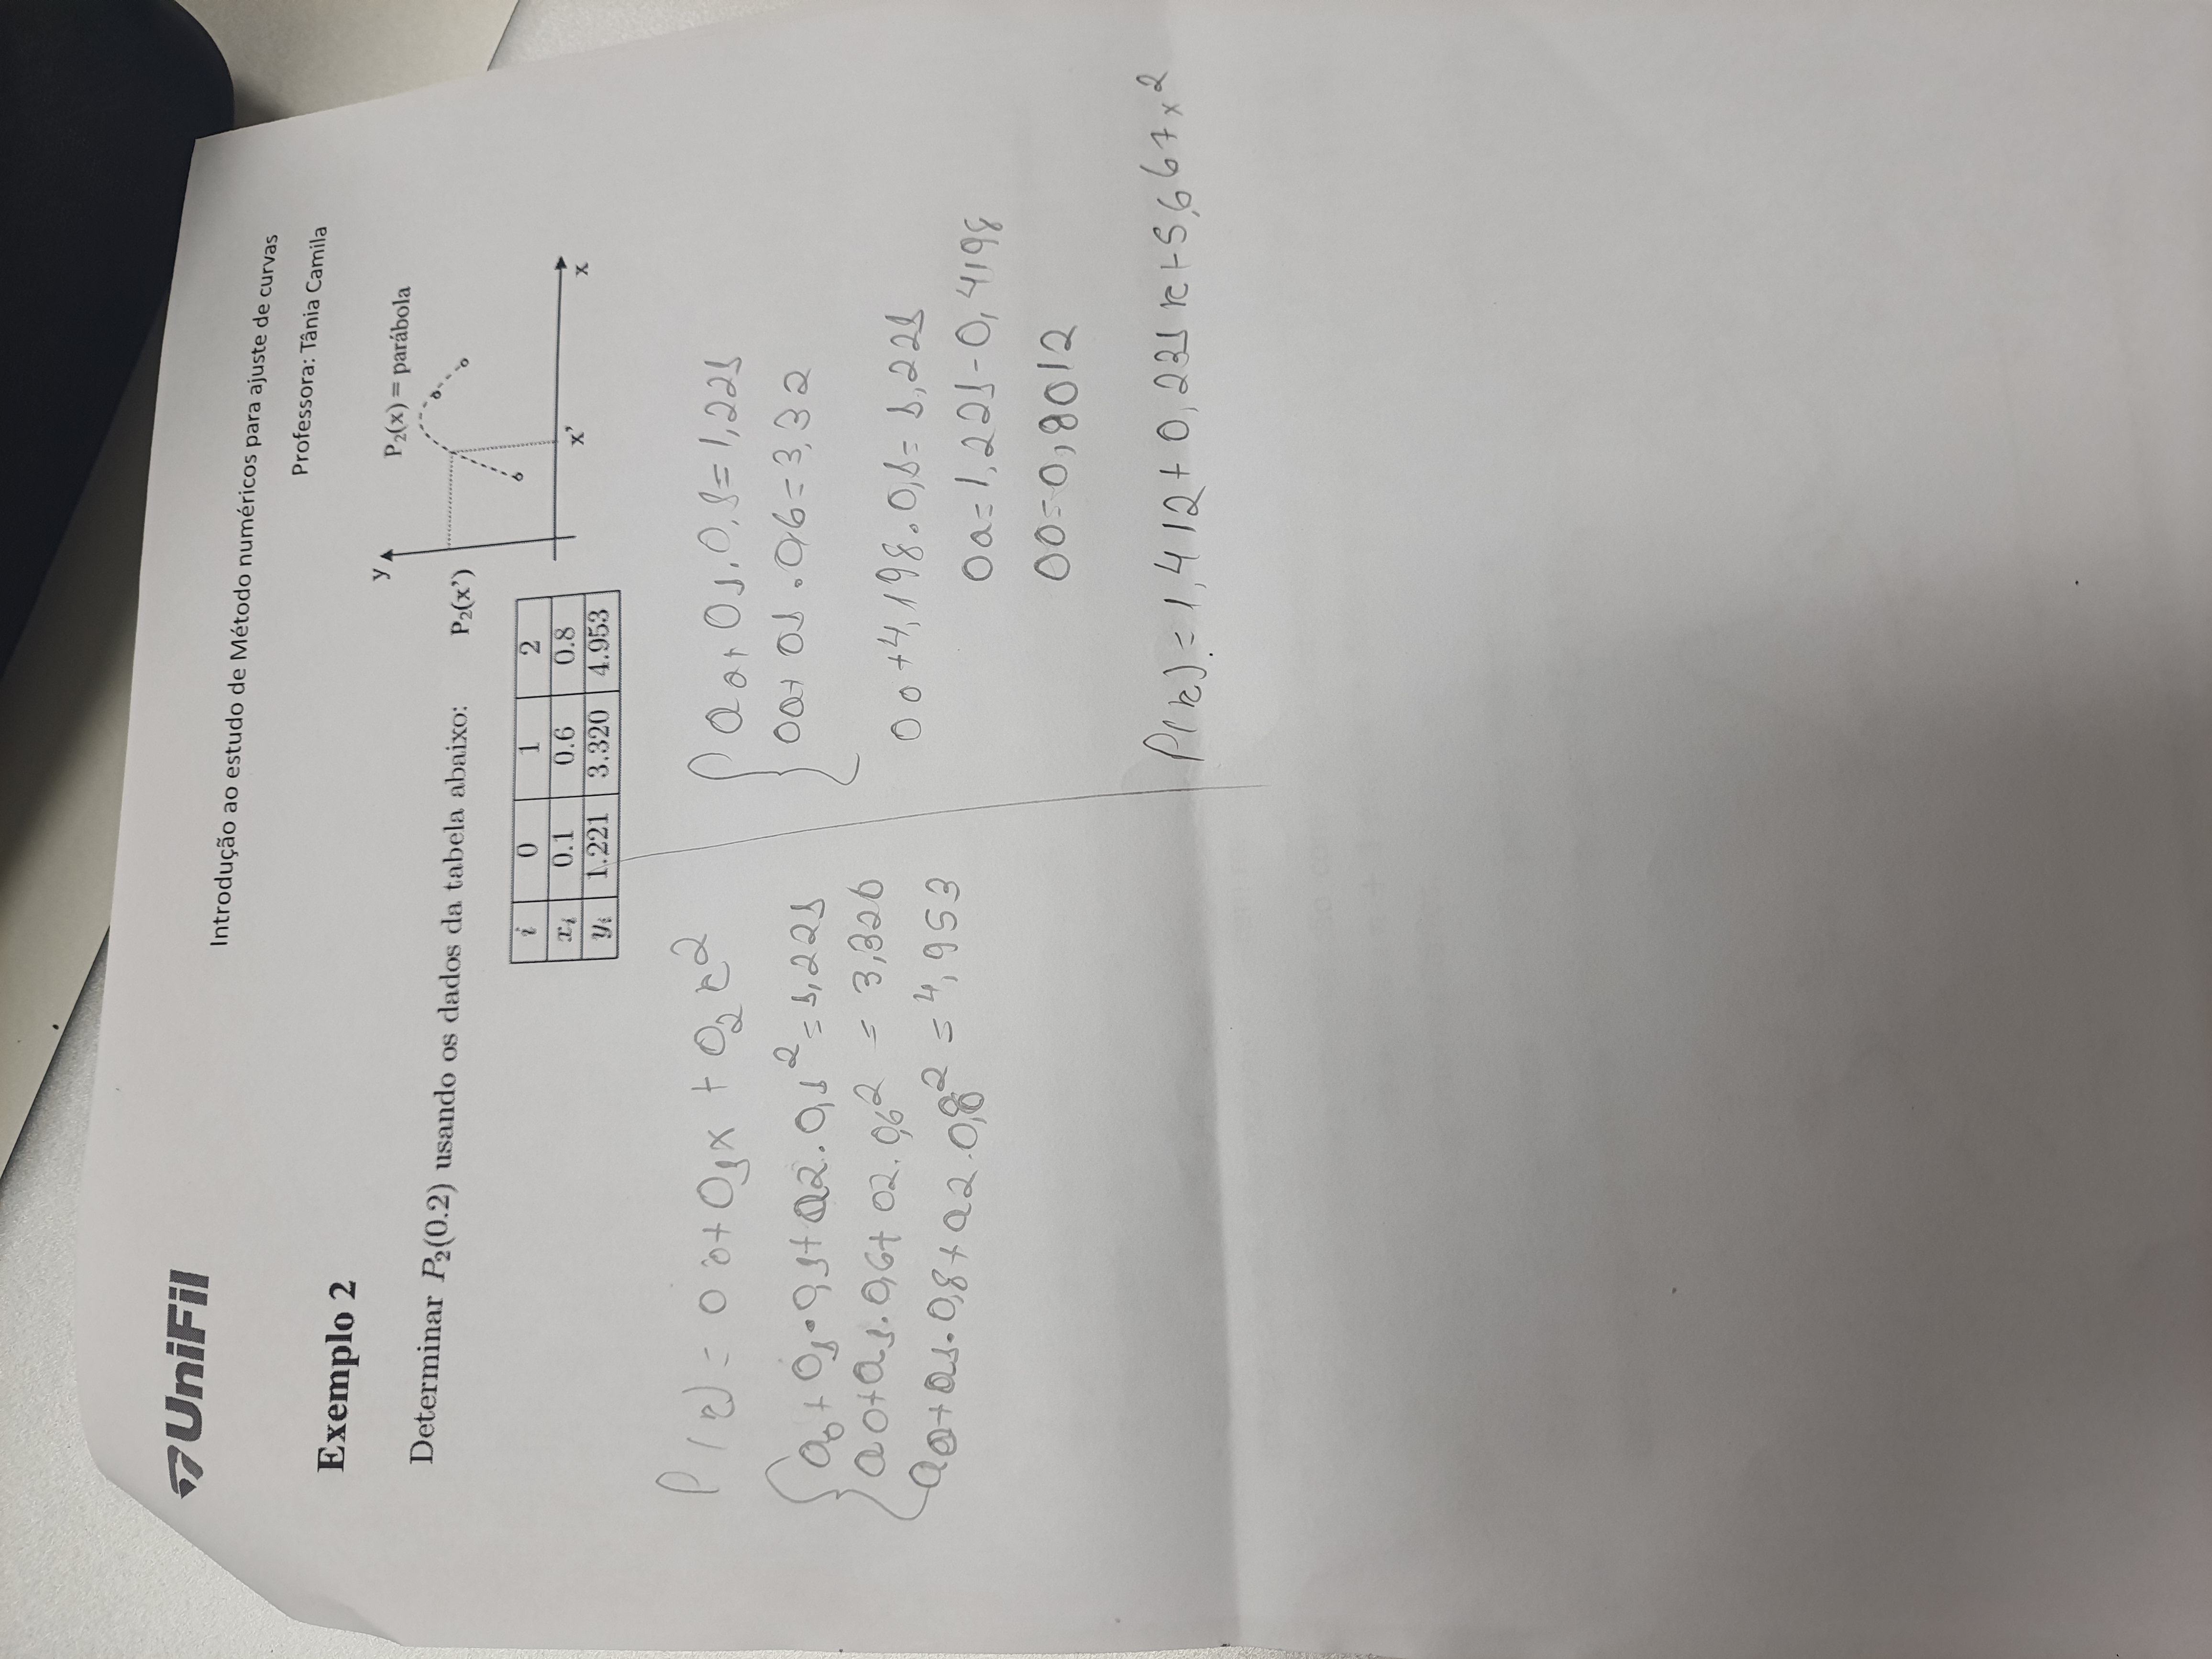 UniFil
Introdução ao estudo de Método numéricos para ajuste de curvas
Professora: Tânia Camila
Exemplo 2
Determinar P₂(0.2) usando os dados da tabela abaixo:
y
P₂(x) = parábola
P₂(x')
x'
x
i 0 1 2
xᵢ 0.1 0.6 0.8
yᵢ 1.221 3.320 4.953
P(x) = a0 + a1x + a2x²
a0 + a1·0,1 + a2·0,1² = 1,221
a0 + a1·0,6 + a2·0,6² = 3,320
a0 + a1·0,8 + a2·0,8² = 4,953
a0 + a1·0,1 = 1,221
a0 + a1·0,6 = 3,32
a0 + 4,198·0,1 = 1,221
a0 = 1,221 - 0,4198
a0 = 0,8012
P(x) = 1,412 + 0,231x + 5,667x²